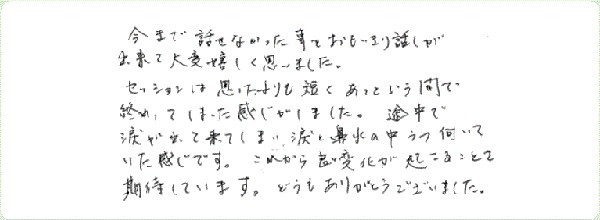 今まで話せなかった事をおもいっきり話しが
出来て大変嬉しく思いました。
セッションは思ったよりも短くあっという間で
終わってしまった感じがしました。途中で
涙が出て来てしまい、涙と鼻水の中うつ向いて
いた感じです。これから変化が起こることを
期待しています。どうもありがとうございました。